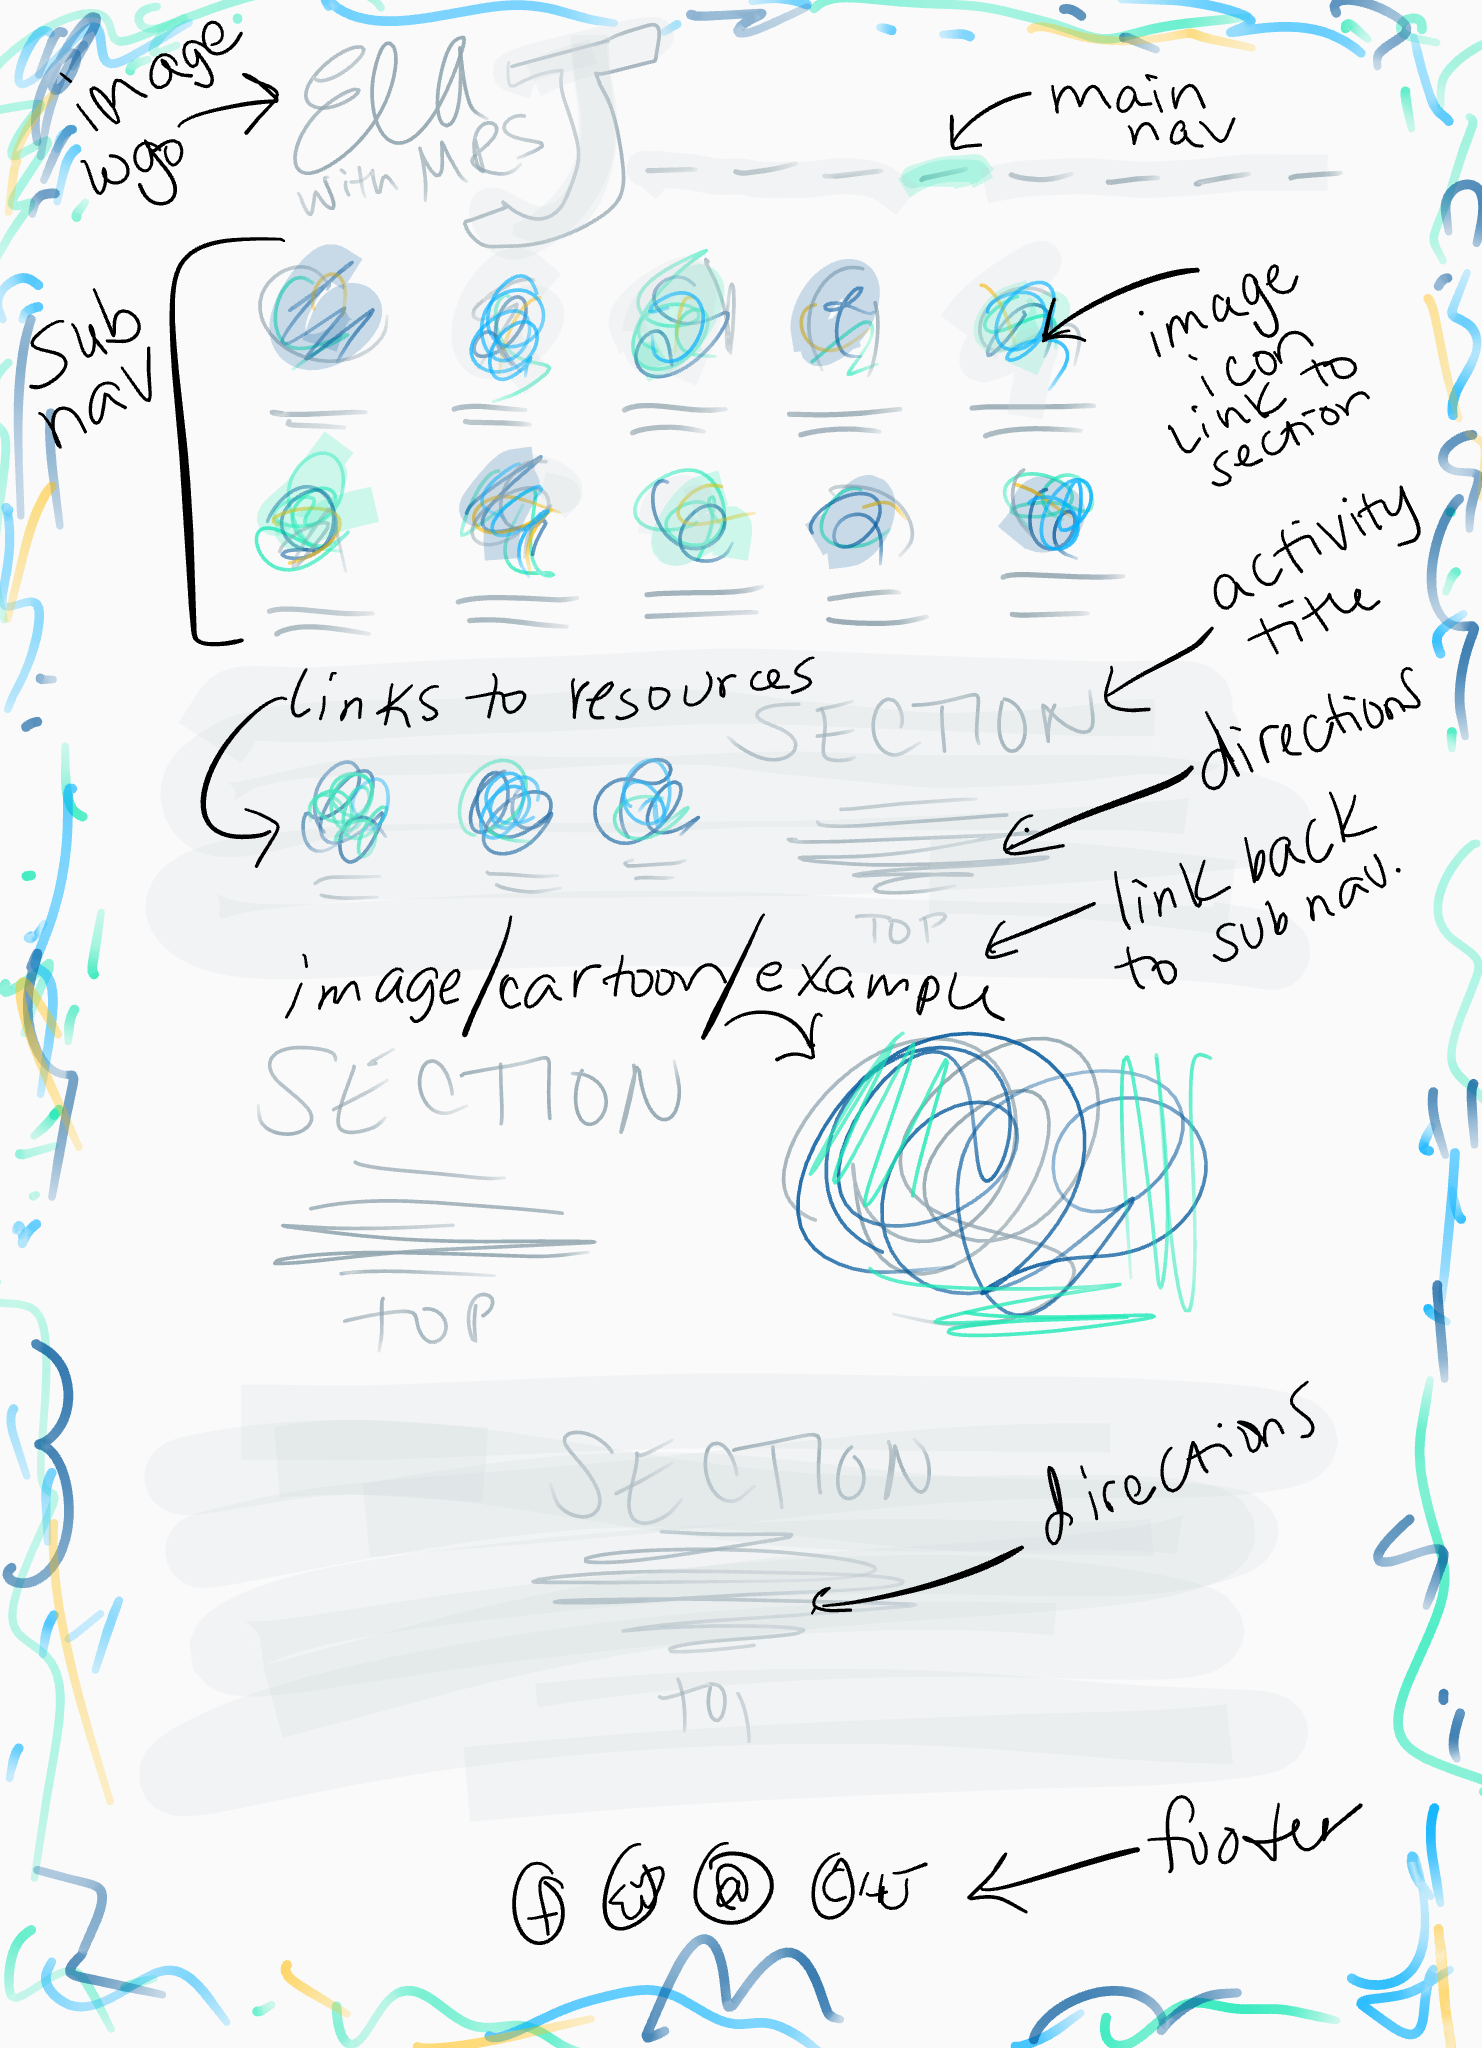 image
logo
Ela
with MRS
J
main
nav
sub
nav
image
icon
link to
section
activity
title
links to resources
SECTION
directions
TOP
link back
to subnav.
image/cartoon/example
SECTION
TOP
SECTION
directions
f
@
©
footer